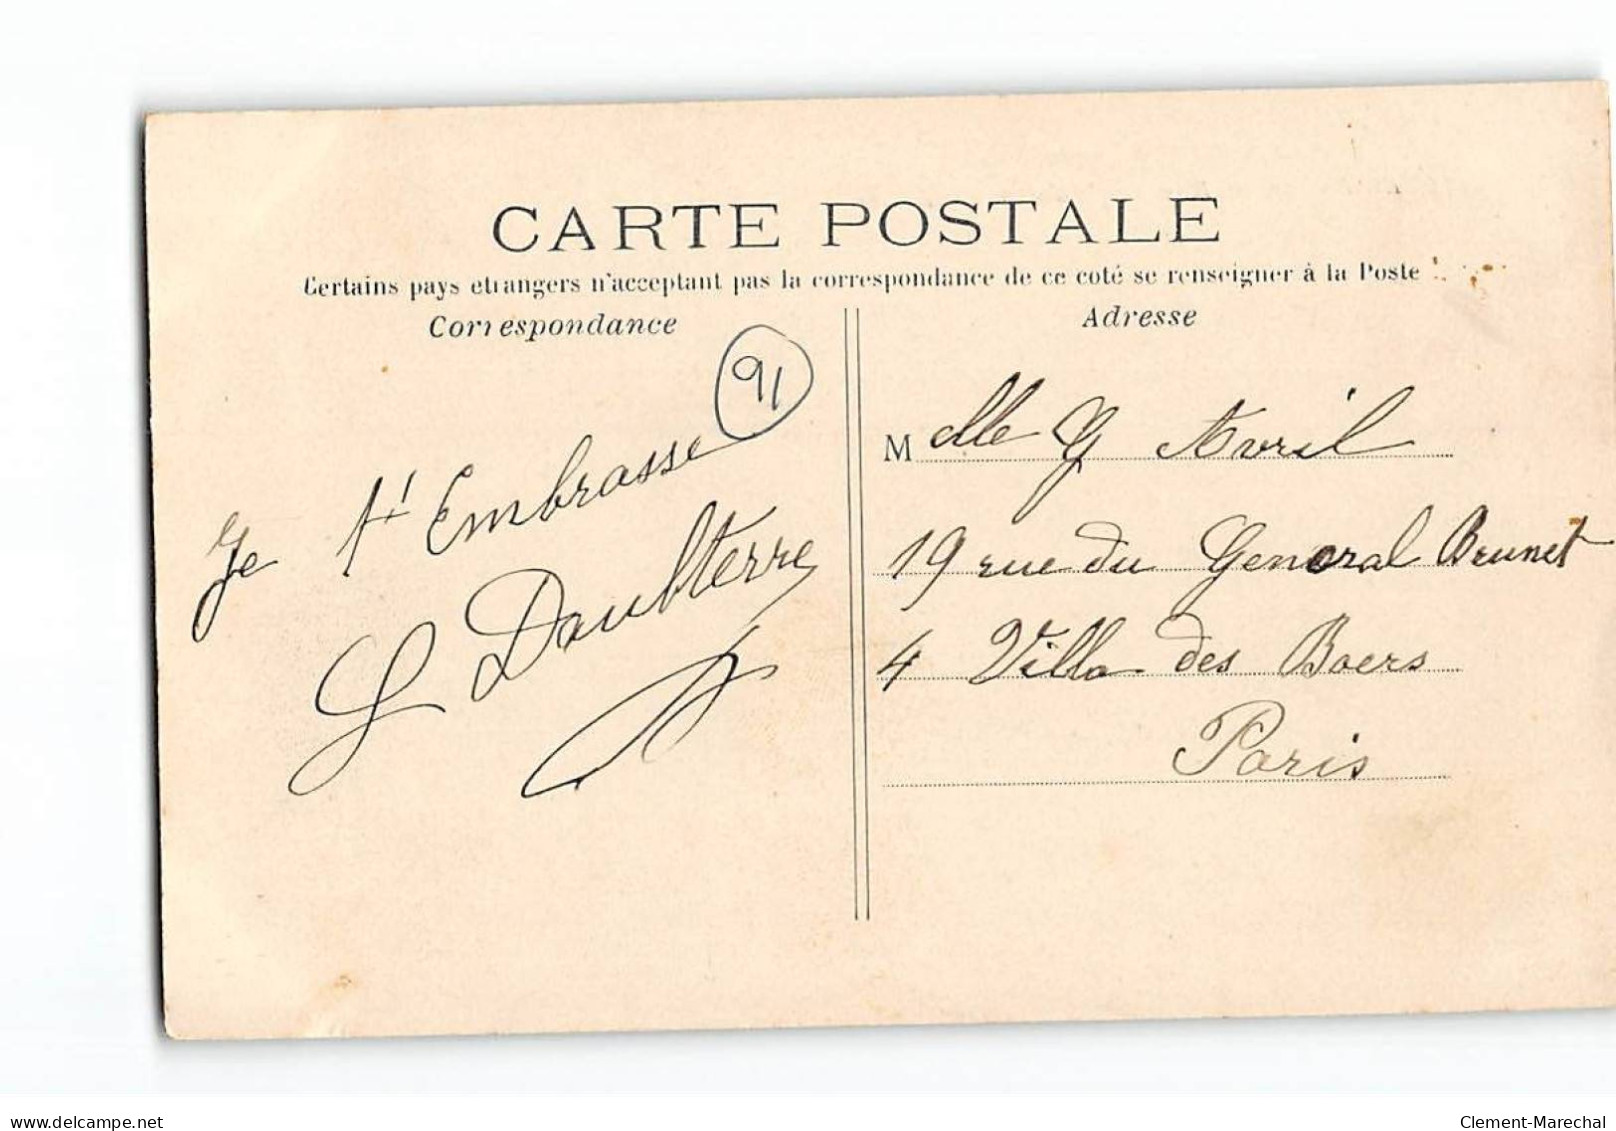 CARTE POSTALE
Certains pays etrangers n'acceptant pas la correspondance de ce coté se renseigner à la Poste
Correspondance
Adresse
91
Je t'Embrasse
Melle G Avril
19 rue du General Brunet
4 Villa des Boers
Paris
delcampe.net
Clement-Marechal